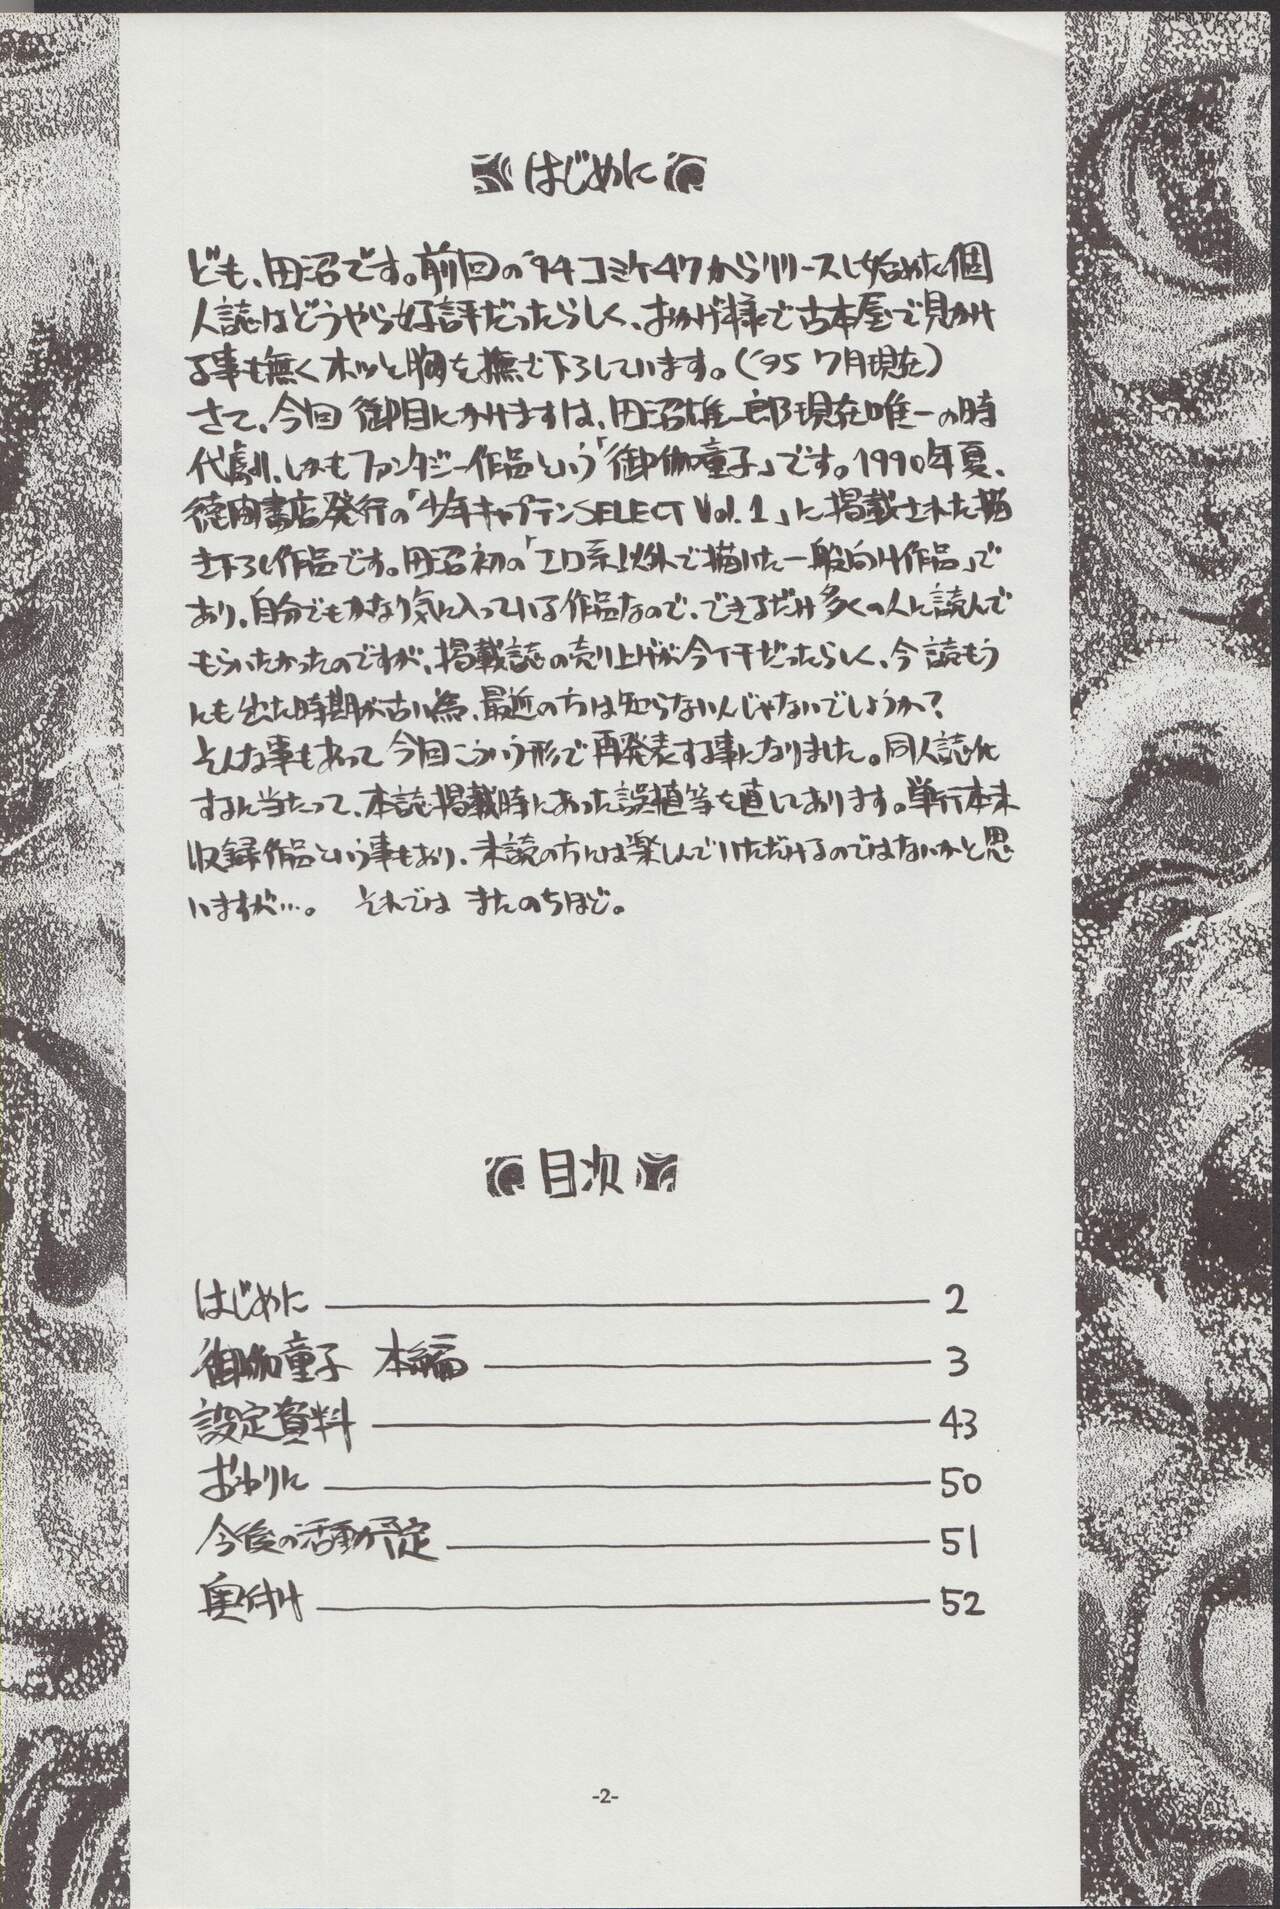 はじめに
ども、田沼です。前回の'94コミケ47からリリースし始めた個
人誌はどうやら好評だったらしく、おかげ様で古本屋で見かけ
る事も無くホッと胸を撫で下ろしています。('95 7月現在)
さて、今回御目にかけますは、田沼雄一郎現在唯一の時
代劇、しかもファンタジー作品という「御伽童子」です。1990年夏、
徳間書店発行の「少年キャプテンSELECT Vol.1」に掲載された描
き下ろし作品です。田沼初の「エロ系以外で描いた一般向け作品」で
あり、自分でもかなり気に入っている作品なので、できるだけ多くの人に読んで
もらいたかったのですが、掲載誌の売り上げが今イチだったらしく、今読もう
にも出た時期が古い為、最近の方は知らないんじゃないでしょうか?
そんな事もあって今回こういう形で再発表する事になりました。同人誌化
するに当たって、本誌掲載時にあった誤植等を直してあります。単行本未
収録作品という事もあり、未読の方には楽しんでいただけるのではないかと思
いますが…。 それではまたのちほど。
目次
はじめに 2
御伽童子 本編 3
設定資料 43
おわりに 50
今後の活動予定 51
奥付け 52
-2-